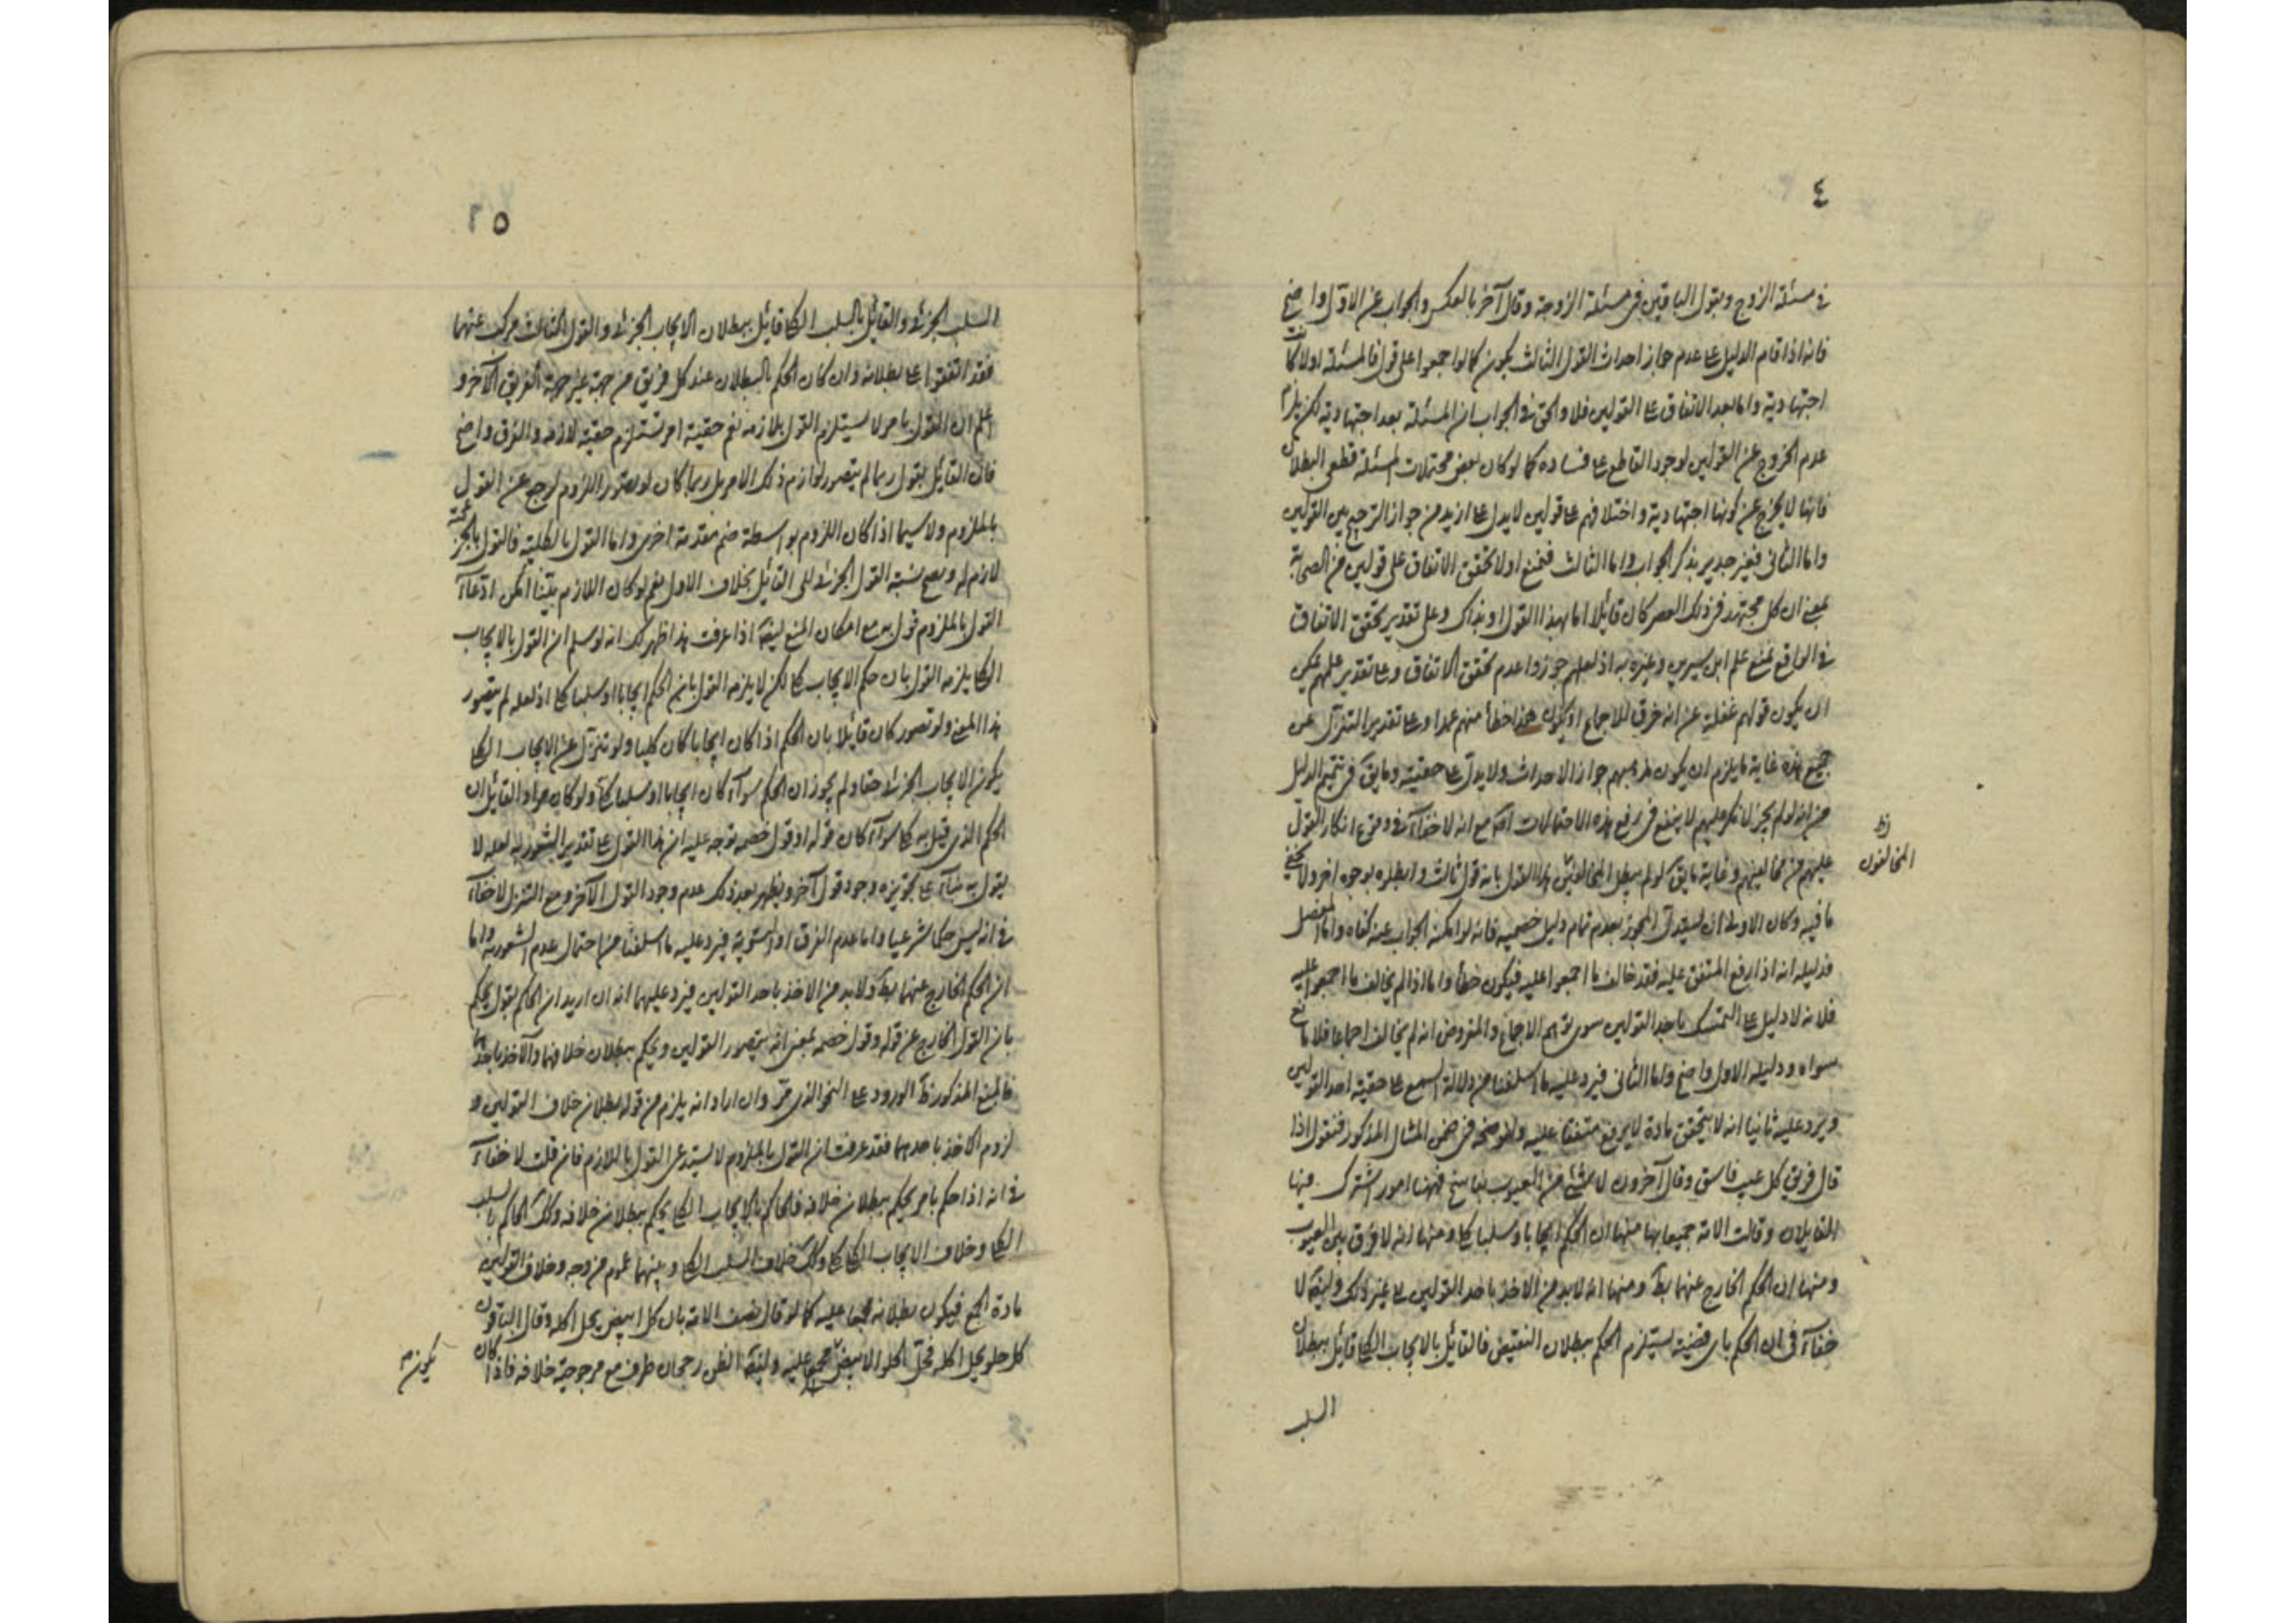 ٤
في مسئلة الزوج وبقول الباقين في مسئلة الزوجة وقال آخر بالعكس والجواب عن الاول واضح
فانه اذا قام الدليل على عدم جواز احداث القول الثالث يكون كما لو اجمعوا على قول فالمسئلة اولا كانت
اجتهادية واما بعد الاتفاق على القولين فلا والحق في الجواب ان المسئلة بعد اجتهادية لكن يلزم
عدم الخروج عن القولين لوجود القاطع على فساده كما لو كان بعض محتملات المسئلة قطعي البطلان
فانها لا يخرج عن كونها اجتهادية واختلافهم على قولين لا يدل على ازيد من جواز الترجيح بين القولين
واما الثاني فغير جدير بذكر الجواب واما الثالث فنمنع اولا تحقق الاتفاق على قولين من الصحابة
بمعنى ان كل مجتهد في ذلك العصر كان قائلا اما بهذا القول او بذاك وعلى تقدير تحقق الاتفاق
في الواقع نمنع علم ابن سيرين وغيره به اذ لعلهم جوزوا عدم تحقق الاتفاق وعلى تقدير علمهم يمكن
ان يكون قولهم غفلة عن انه خرق للاجماع او يكون هذا خطأ منهم عمدا وعلى تقدير التنزل عن
جميع هذه غاية ما يلزم ان يكون مذهبهم جواز الاحداث ولا يدل على حقيته وما يق في تتميم الدليل
من انه لو لم يجز لانكر عليهم لا ينفع في رفع هذه الاحتمالات مع انه لا خفآء في وقوع انكار القول
عليهم من مخالفيهم وغاية ما يق لو لم يبطل المخالفين هذا القول بانه قول ثالث وابطلوه بوجوه اخر ولا يخفى
ظ
المخالفون
ما فيه وكان الاولى ان يستدل المجوز بعدم تمام دليل خصمه فانه لو امكنه الجواب عنه كفاه واما المفصل
فدليله انه اذا رفع المتفق عليه فقد خالف ما اجمعوا عليه فيكون خطأ واما اذا لم يخالف ما اجمعوا عليه
فلانه لا دليل على التمسك باحد القولين سوى توهم الاجماع والمفروض انه لم يخالف اجماعا فلا مانع
سواه ودليله الاول واضح واما الثاني فيرد عليه ما اسلفنا من دلالة السمع على حقية احد القولين
ويرد عليه ثانيا انه لا يتحقق مادة لا يرفع متفقا عليه ولنوضحه في ضمن المثال المذكور فنقول اذا
قال فريق كل عيب فاسق وقال آخرون لا شئ من العيوب بفاسخ فههنا امور اشترك فيها
القايلان وقالت الامة جميعا بها منها ان الحكم ايجابا وسلبا كلي ومنها انه لا فرق بين العيوب
ومنها ان الحكم الخارج عنهما بط ومنها انه لا بد من الاخذ باحد القولين الى غير ذلك وايضا لا
خفآء في ان الحكم باي قضية يستلزم الحكم ببطلان النقيض فالقائل بالايجاب الكلي قائل ببطلان
السلب
٥
السلب الجزئي والقائل بالسلب الكلي قائل ببطلان الايجاب الجزئي والقول الثالث مركب عنهما
فقد اتفقوا على بطلانه وان كان الحكم بالبطلان عند كل فريق من جهة غير جهة الفريق الآخر و
اعلم ان القول بامر لا يستلزم القول بلازمه نعم حقية امر تستلزم حقية لازمه والفرق واضح
فان القائل بقول ربما لم يتصور لوازم ذلك الامر بل ربما كان لو تصور اللزوم لرجع عن القول
بالملزوم ولا سيما اذا كان اللزوم بواسطة ضم مقدمة اخرى واما القول بالكلية فالقول بالجزئية
لازم له ويصح نسبة القول الجزئي الى القائل بخلاف الاول نعم لو كان اللازم بينا امكن ادعآء
القول بالملزوم قول به مع امكان المنع ايضا اذا عرفت هذا ظهر لك انه لو سلم ان القول بالايجاب
الكلي يلزمه القول بان حكم الايجاب كلي لكن لا يلزمه القول بان الحكم ايجابا او سلبا كلي اذ لعله لم يتصور
هذا المعنى ولو تصور كان قائلا بان الحكم اذا كان ايجابا كان كليا ولو تنزل عن الايجاب الكلي
يكون الايجاب الجزئي حقا ولم يجوز ان الحكم سوآء كان ايجابا او سلبا كلي ولو كان مراد القائل ان
الحكم الذي قيل به كلي سوآء كان قوله او قول خصمه توجه عليه ان هذا القول على تقدير الشعور به لعله لا
يقول به بنآء على تجويزه وجود قول آخر ويظهر بعد ذلك عدم وجود القول الآخر ومع التنزل لا خفآء
في انه ليس حكما شرعيا واما عدم الفرق او التسوية فيرد عليه ما اسلفنا من احتمال عدم الشعور به واما
ان الحكم الخارج عنهما بط ولا بد من الاخذ باحد القولين فيرد عليهما انه ان اريد ان الحاكم بقول يحكم
بان القول الخارج عن قوله وقول خصمه بمعنى انه يتصور القولين ويحكم ببطلان خلافهما والآخذ باحدهما
فالمنع المذكور ظ الورود على النحو الذي مر وان اراد انه يلزم من قوله بطلان خلاف القولين و
لزوم الاخذ باحدهما فقد عرفت ان القول بالملزوم لا يستدعي القول باللازم فان قلت لا خفآء
في انه اذا حكم بامر يحكم ببطلان خلافه فالحاكم بالايجاب الكلي يحكم ببطلان خلافه وكذا الحاكم بالسلب
الكلي وخلاف الايجاب الكلي كلي وكذا خلاف السلب الكلي وبينهما عموم من وجه وخلاف القولين
مادة الجمع فيكون بطلانه مجمعا عليه كما لو قال نصف الامة بان كل ابيض يحل اكله وقال الباقون
كل حلو يحل اكله فحل الحلو الابيض مجمع عليه وايضا الظن رجحان طرف مع مرجوحية خلافه فاذا كان
يكون